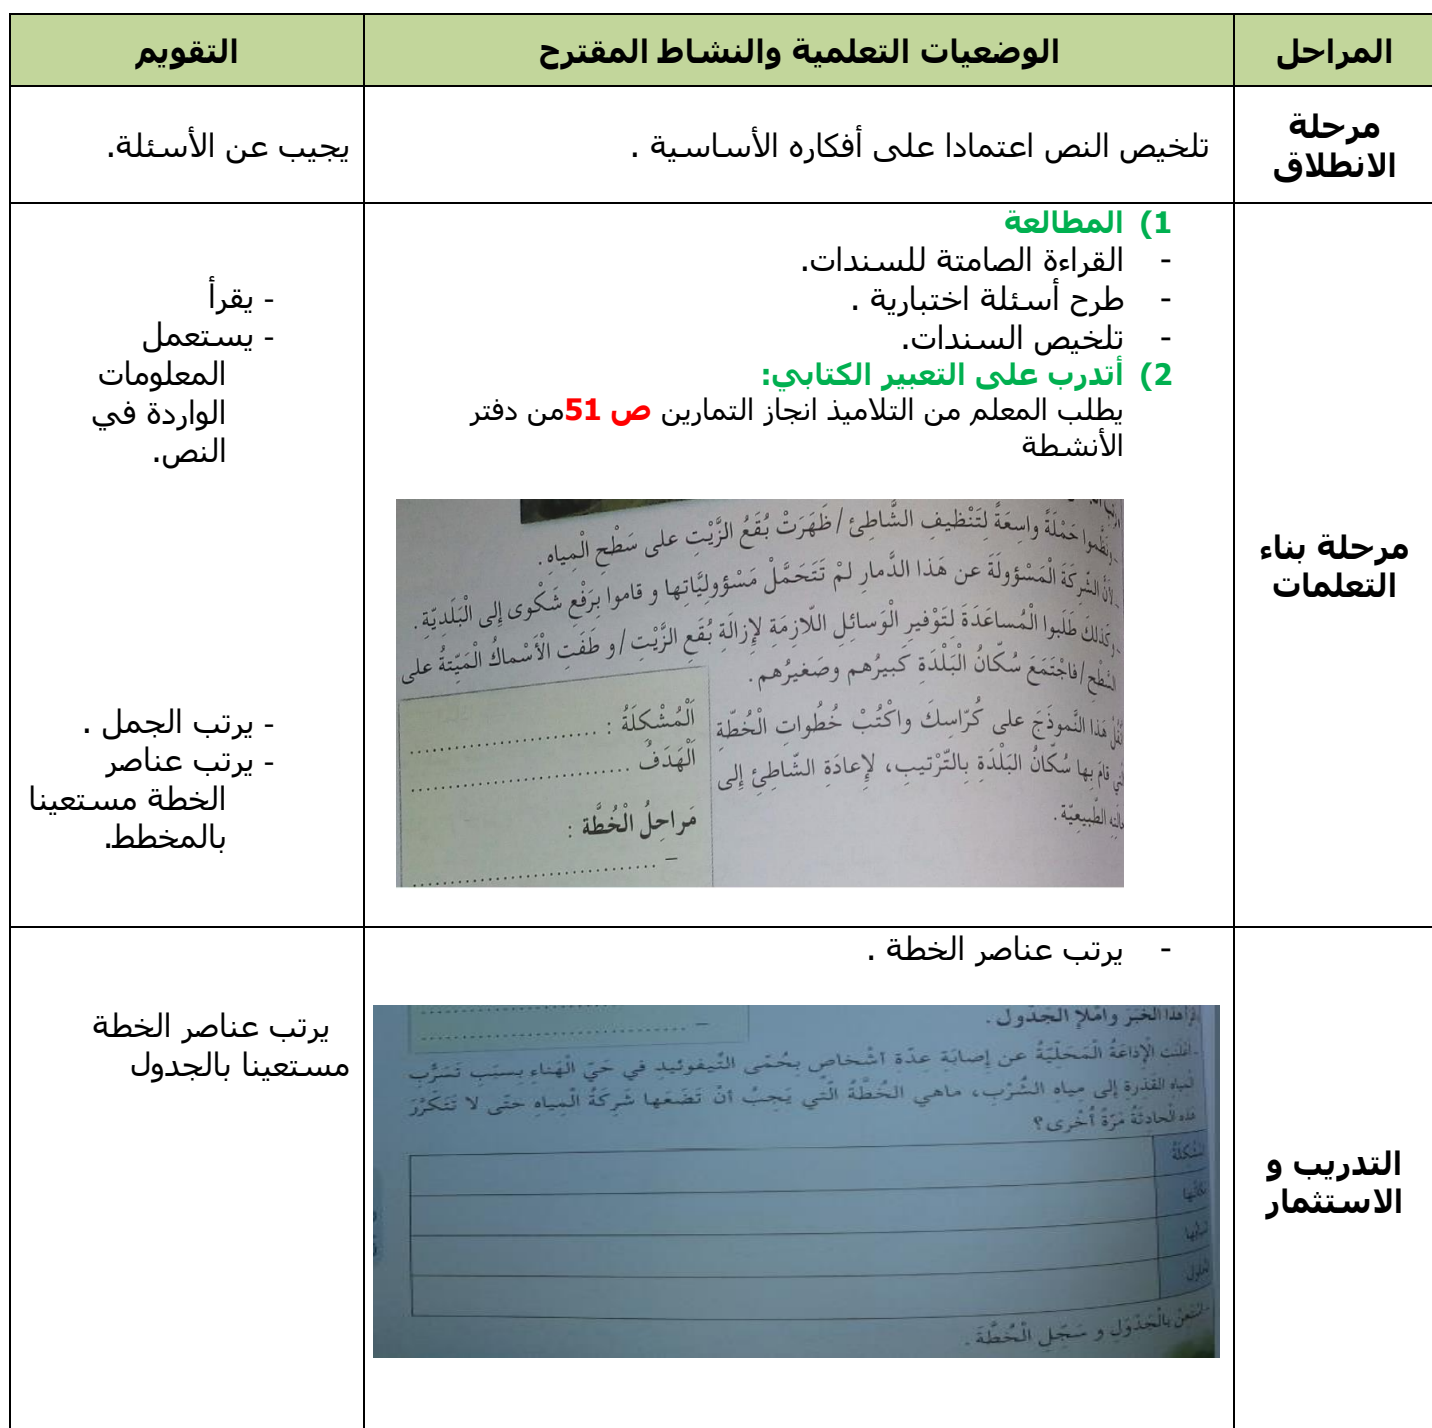 المراحل
الوضعيات التعلمية والنشاط المقترح
التقويم
مرحلة
الانطلاق
تلخيص النص اعتمادا على أفكاره الأساسية .
يجيب عن الأسئلة.
مرحلة بناء
التعلمات
1) المطالعة
- القراءة الصامتة للسندات.
- طرح أسئلة اختبارية .
- تلخيص السندات.
2) أتدرب على التعبير الكتابي:
يطلب المعلم من التلاميذ انجاز التمارين ص 51من دفتر
الأنشطة
- ونَظَّموا حَمْلَةً واسِعَةً لِتَنْظيفِ الشَّاطِئ / ظَهَرَتْ بُقَعُ الزَّيْتِ على سَطْحِ الْمِياهِ .
- لِأَنَّ الشَّرِكَةَ الْمَسْؤولَةَ عن هَذا الدَّمارِ لمْ تَتَحَمَّلْ مَسْؤولِيَّاتِها و قاموا بِرَفْعِ شَكْوى إِلى الْبَلَدِيّةِ .
- وكَذلكَ طَلَبوا الْمُساعَدَةَ لِتَوْفيرِ الْوَسائلِ اللّازِمَةِ لإِزالَةِ بُقَعِ الزَّيْتِ / و طَفَتِ الْأَسْماكُ الْمَيّتةُ على
السَّطْحِ / فاجْتَمَعَ سُكّانُ الْبَلْدَةِ كَبيرُهم وصَغيرُهم .
أنْقُلْ هَذا النَّموذَجَ على كُرّاسِكَ واكْتُبْ خُطُواتِ الْخُطّةِ
الّتي قامَ بِها سُكّانُ البَلْدَةِ بِالتّرْتيبِ، لإِعادَةِ الشّاطِئِ إِلى
حالَتِهِ الطَّبيعِيّة .
اَلْمُشْكِلَةُ : ..........................
اَلْهَدَفُ ..........................
مَراحِلُ الْخُطَّة :
– ..........................
- يقرأ
- يستعمل
المعلومات
الواردة في
النص.
- يرتب الجمل .
- يرتب عناصر
الخطة مستعينا
بالمخطط.
التدريب و
الاستثمار
- يرتب عناصر الخطة .
هذا الخَبَرَ وامْلَإِ الجَدْول .
- أعْلَنَت الْإِذاعَةُ الْمَحَلِّيّةُ عن إِصابَةِ عِدّة أشْخاصٍ بِحُمّى التّيفوئيدِ في حَيّ الْهَناءِ بسبَبِ تَسَرُّبِ
المياهِ القَذِرةِ إلى مِياهِ الشُّرْبِ، ماهي الخُطّةُ الّتي يَجِبُ أنْ تَضَعَها شَرِكَةُ الْمِياهِ حتّى لا تَتَكَرَّرَ
هَذه الْحادِثَةُ مَرّةً أُخْرى ؟
المُشْكِلَةُ
مَكانُها
أسْبابُها
الحُلول
- اسْتَعِنْ بالْجَدْوَلِ و سَجّلِ الْخُطّةَ .
يرتب عناصر الخطة
مستعينا بالجدول